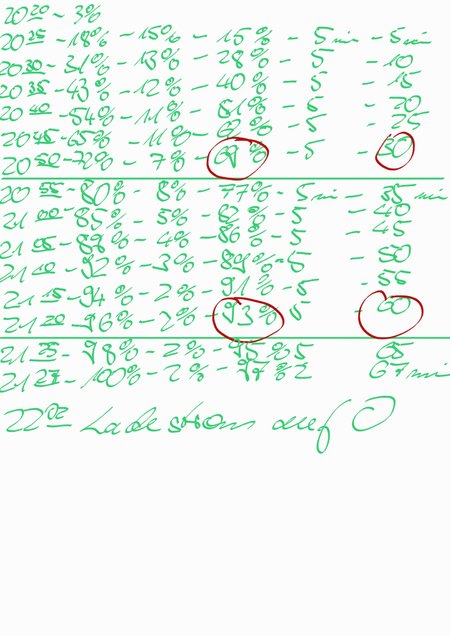 20²⁰ - 3%
20²⁵ - 18% - 15% - 15% - 5 min - 5 min
20³⁰ - 31% - 13% - 28% - 5 - 10
20³⁵ - 43% - 12% - 40% - 5 - 15
20⁴⁰ - 54% - 11% - 51% - 5 - 20
20⁴⁵ - 65% - 11% - 62% - 5 - 25
20⁵⁰ - 72% - 7% - 69% - 5 - 30
20⁵⁵ - 80% - 8% - 77% - 5 min - 35 min
21⁰⁰ - 85% - 5% - 82% - 5 - 40
21⁰⁵ - 89% - 4% - 86% - 5 - 45
21¹⁰ - 92% - 3% - 89% - 5 - 50
21¹⁵ - 94% - 2% - 91% - 5 - 55
21²⁰ - 96% - 2% - 93% - 5 - 60
21²⁵ - 98% - 2% - 95% 5 65
21²⁷ - 100% - 2% - 97% 2 67 min
22⁰² Ladestrom auf 0